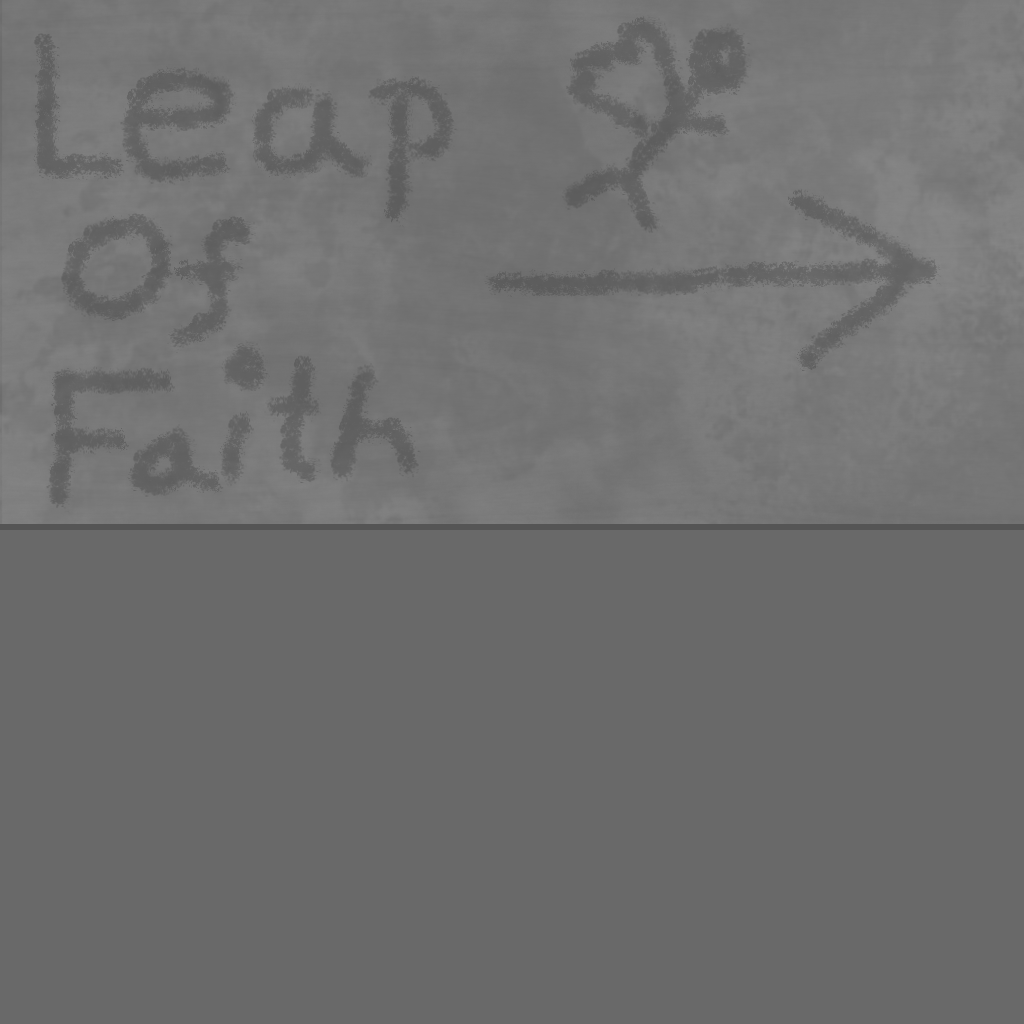 Leap
Of
Faith